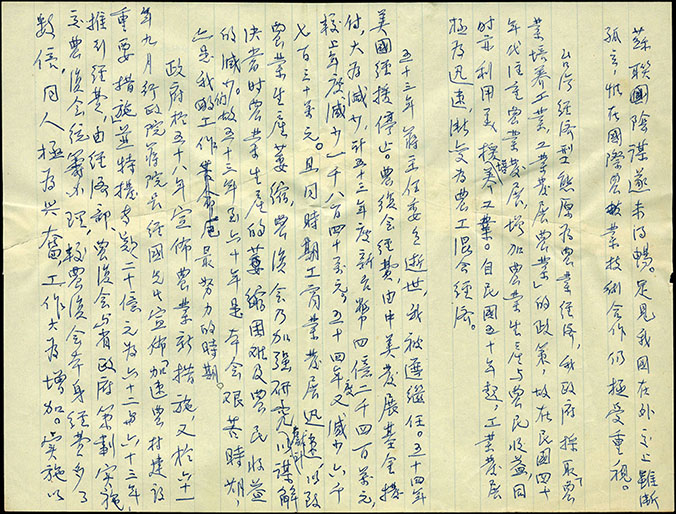 蘇聯陰謀遂未得暢。足見我國在外交上雖漸
孤立,但在國際農業技術合作仍極受重視。
台灣經濟型態原為農業經濟,我政府採取「農
業培養工業工業發展農業」的政策,故在民國四十
年代注重農業發展,增加農業生產與農民收益,同
時亦利用美援培養工業。自民國五十年起,工業發展
極為迅速,漸變為農工混合經濟。
五十三年蔣主任委員逝世,我被遴繼任。五十四年
美國經援停止。農復會經費,由中美發展基金撥
付,大為減少,計五十三年度新台幣四億二千四百萬元,
較上年度減少一千八百四十萬元,五十四年度又減少六千
七百三十萬元。且同時期工商業發展迅速,以致
農業生產萎縮,農復會乃加強研究以謀解
決當時農業生產的萎縮困難及農民收益
的減少,故五十三年至六十年是本會艱苦時期,
亦是我的工作最努力的時期。
政府於五十八年宣佈農業新措施,又於六十一
年九月行政院蔣院長經國先生宣佈「加速農村建設
重要措施並特撥專款二十億元為六十二與六十三年
推行經費,由經濟部農復會與省政府策劃實施,
交農復會統籌辦理,較農復會本身經費多了
數倍,同人極為興奮,工作大為增加。實施以